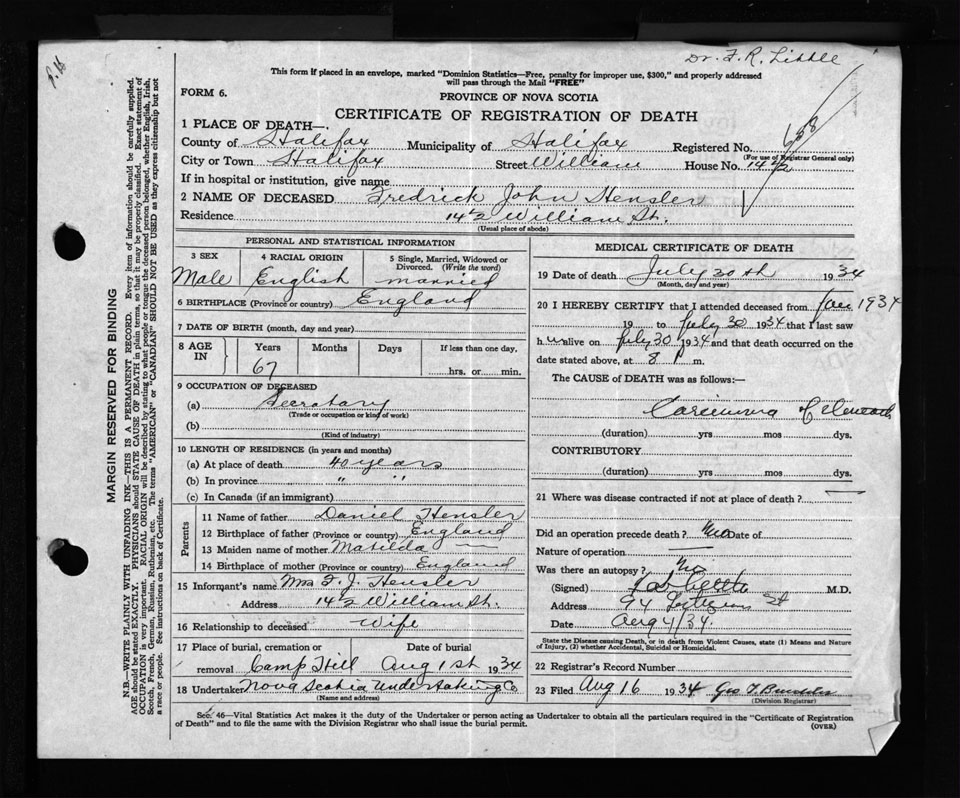 Dr. F. R. Little
This form if placed in an envelope, marked "Dominion Statistics—Free, penalty for improper use, $300," and properly addressed
will pass through the Mail "FREE"
FORM 6.
PROVINCE OF NOVA SCOTIA
CERTIFICATE OF REGISTRATION OF DEATH
1 PLACE OF DEATH—.
County of Halifax Municipality of Halifax Registered No. 658
(For use of Registrar General only)
City or Town Halifax Street William House No. 14 1/2
If in hospital or institution, give name
2 NAME OF DECEASED Fredrick John Hensler
Residence 14 1/2 William St.
(Usual place of abode)
PERSONAL AND STATISTICAL INFORMATION
3 SEX 4 RACIAL ORIGIN 5 Single, Married, Widowed or
Divorced. (Write the word)
Male English married
6 BIRTHPLACE (Province or country) England
7 DATE OF BIRTH (month, day and year)
8 AGE IN Years Months Days If less than one day.
67 hrs. or min.
9 OCCUPATION OF DECEASED
(a) Secretary
(Trade or occupation or kind of work)
(b)
(Kind of industry)
10 LENGTH OF RESIDENCE (in years and months)
(a) At place of death 40 years
(b) In province " "
(c) In Canada (if an immigrant)
Parents
11 Name of father Daniel Hensler
12 Birthplace of father (Province or country) England
13 Maiden name of mother Matilda —
14 Birthplace of mother (Province or country) England
15 Informant's name Mrs F. J. Hensler
Address 14 1/2 William St.
16 Relationship to deceased Wife
17 Place of burial, cremation or Date of burial
removal Camp Hill Aug 1st 1934
18 Undertaker Nova Scotia Undertaking Co
(Name and address)
MEDICAL CERTIFICATE OF DEATH
19 Date of death July 30th 1934
(Month, day and year)
20 I HEREBY CERTIFY that I attended deceased from 1934
19 to July 30 1934 that I last saw
h im alive on July 30 1934 and that death occurred on the
date stated above, at 8 P m.
The CAUSE of DEATH was as follows:—
Carcinoma
(duration) yrs mos dys.
CONTRIBUTORY
(duration) yrs mos dys.
21 Where was disease contracted if not at place of death? —
Did an operation precede death? No Date of
Nature of operation —
Was there an autopsy? No
(Signed) M.D.
Address 94 St
Date Aug 4/34.
State the Disease causing Death, or in death from Violent Causes, state (1) Means and Nature
of Injury, (2) whether Accidental, Suicidal or Homicidal.
22 Registrar's Record Number
23 Filed Aug 16 1934 Geo F.
(Division Registrar)
Sec. 46—Vital Statistics Act makes it the duty of the Undertaker or person acting as Undertaker to obtain all the particulars required in the "Certificate of Registration
of Death" and to file the same with the Division Registrar who shall issue the burial permit.
(OVER)
MARGIN RESERVED FOR BINDING
N.B.—WRITE PLAINLY WITH UNFADING INK—THIS IS A PERMANENT RECORD. Every item of information should be carefully supplied.
AGE should be stated EXACTLY. PHYSICIANS should STATE CAUSE OF DEATH in plain terms, so that it may be properly classified. Exact statement of
OCCUPATION is very important. RACIAL ORIGIN will be described by stating to what people or tongue the deceased person belonged, whether English, Irish,
Scotch, French, German, Russian, Ruthenian, etc. The terms "AMERICAN" or "CANADIAN" SHOULD NOT BE USED as they express citizenship but not
a race or people. See instructions on back of Certificate.